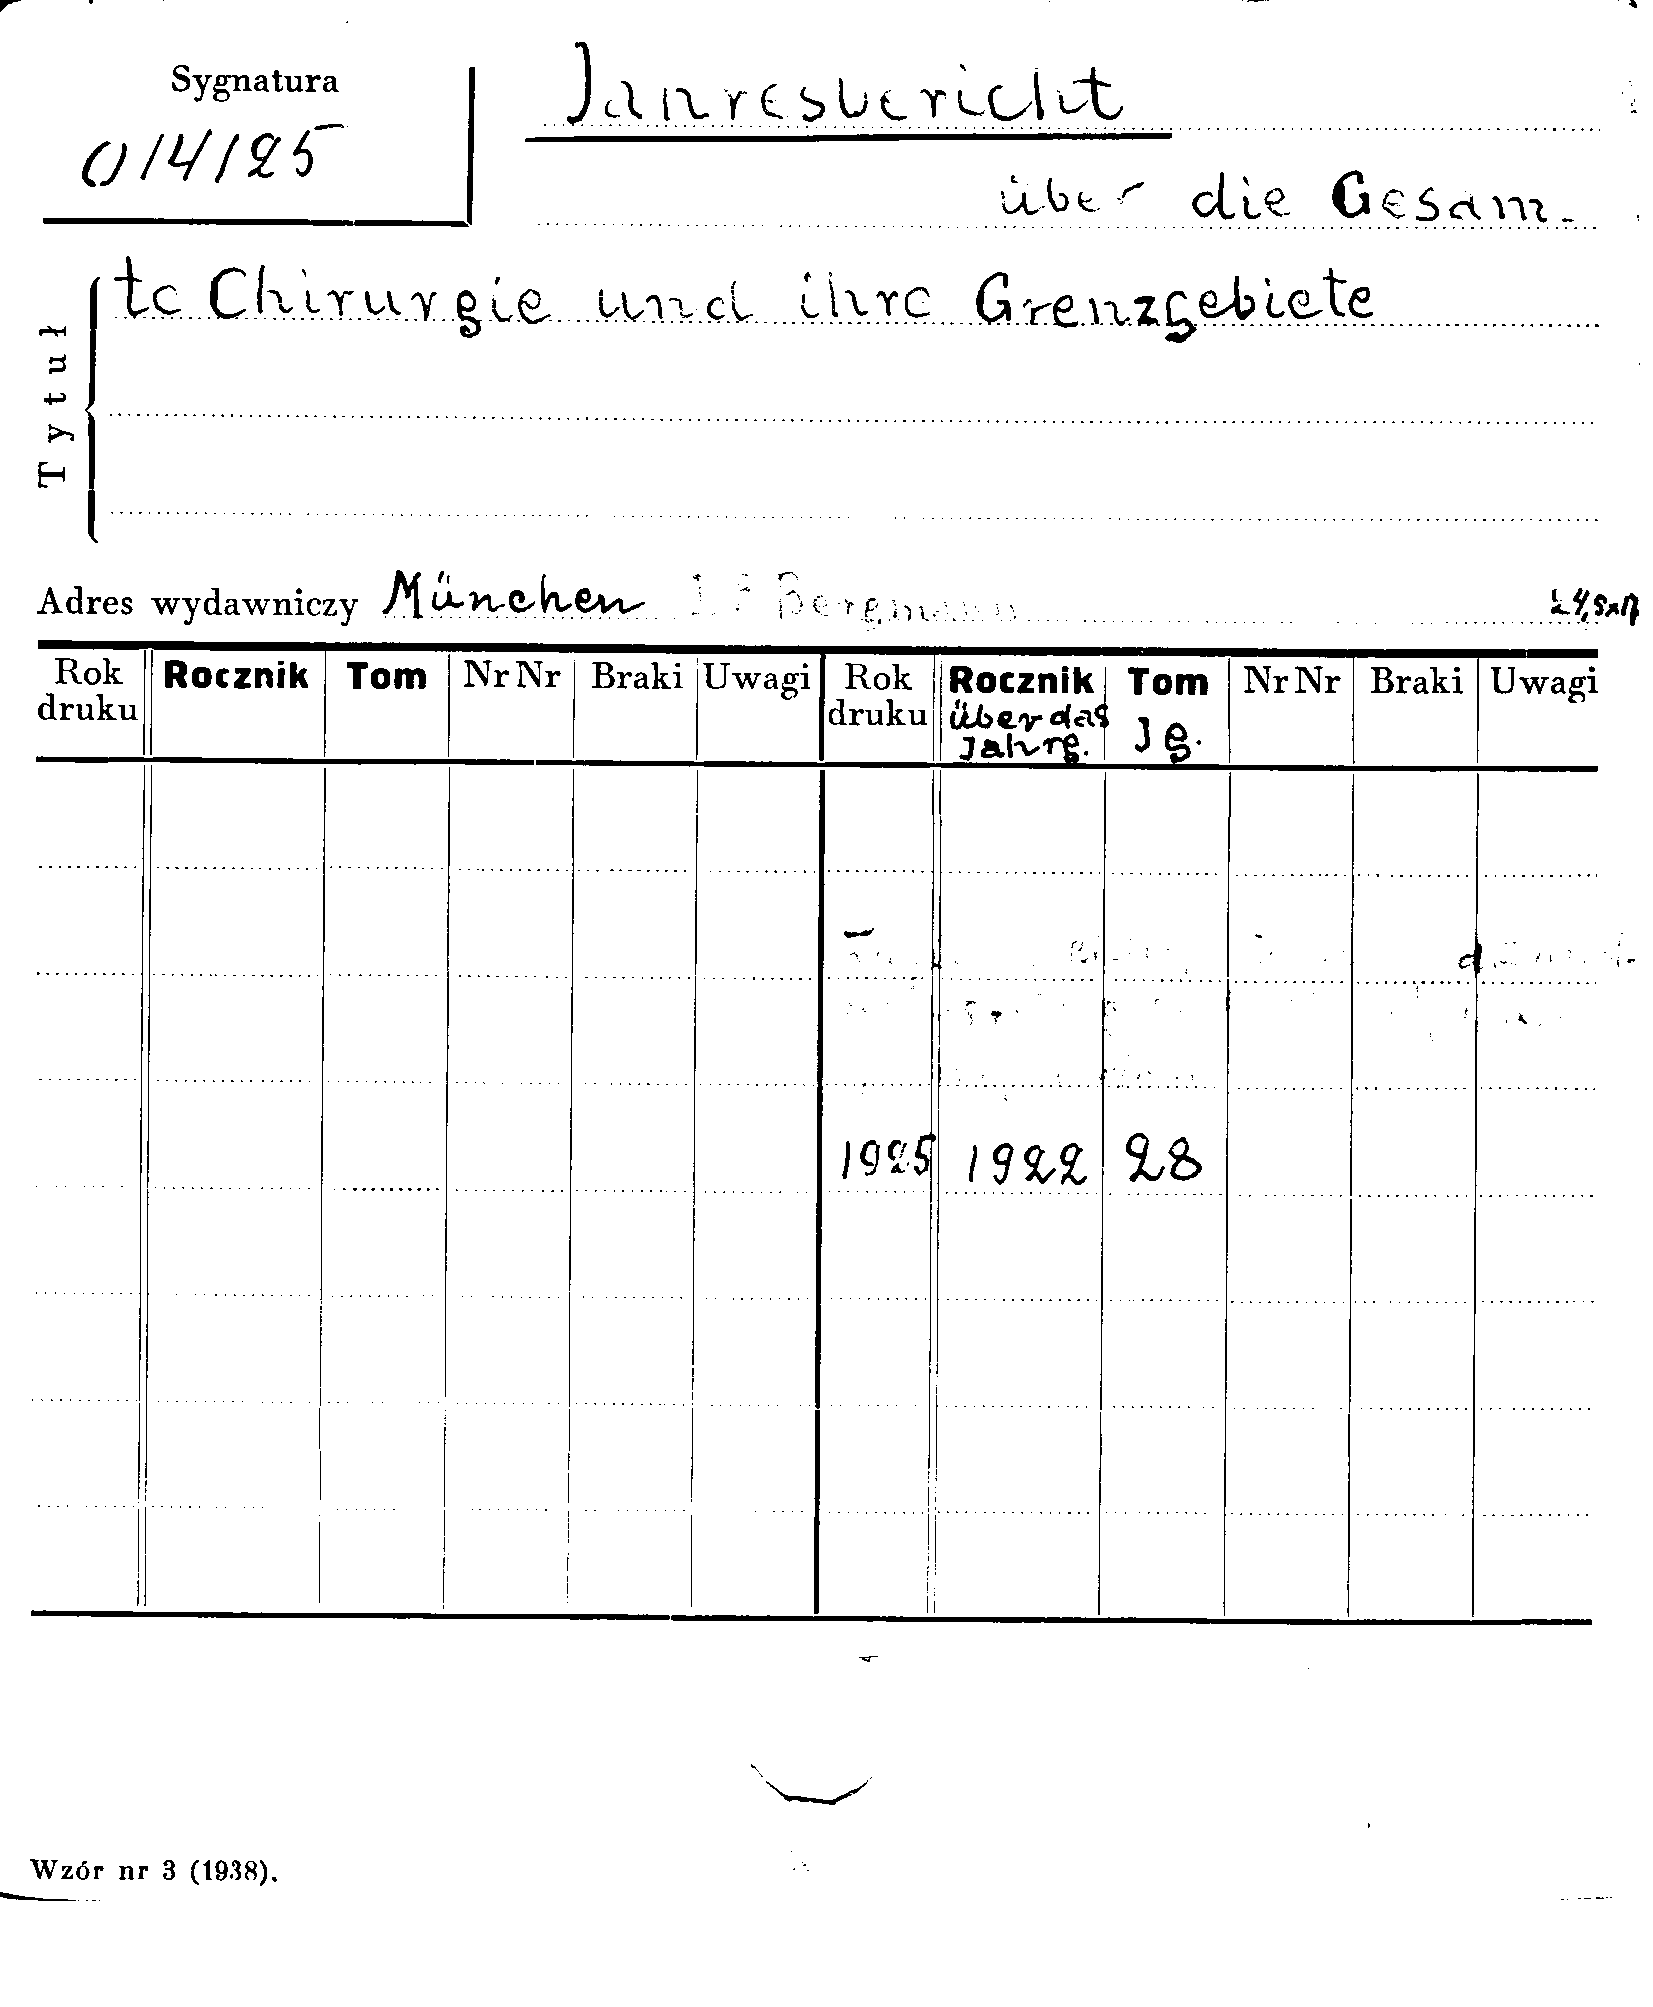 Sygnatura
014125
Jahresbericht
über die Gesam-
te Chirurgie und ihre Grenzgebiete
Tytuł
Adres wydawniczy München J. F. Bergmann 24,5x17
Rok druku Rocznik Tom Nr Nr Braki Uwagi Rok druku Rocznik über das Jahrg. Tom Jg. Nr Nr Braki Uwagi
1925 1922 28
Wzór nr 3 (1938).